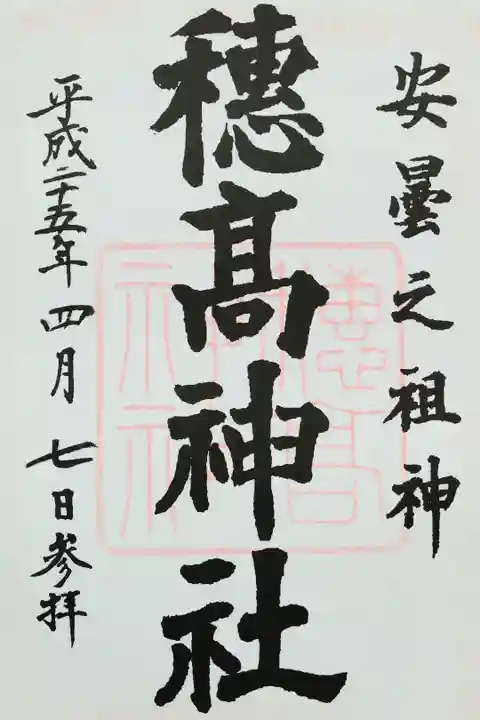 安曇之祖神
穗髙神社
平成二十五年四月七日参拝
穂高
神社